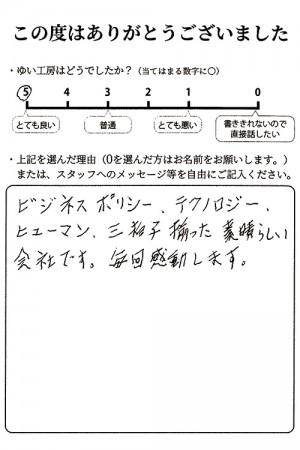 この度はありがとうございました
・ゆい工房はどうでしたか？（当てはまる数字に○）
⑤ 4 3 2 1 0
とても良い 普通 とても悪い 書ききれないので直接話したい
・上記を選んだ理由（0を選んだ方はお名前をお願いします。）
または、スタッフへのメッセージ等を自由にご記入ください。
ビジネスポリシー、テクノロジー、
ヒューマン、三拍子揃った素晴らしい
会社です。毎回感動します。